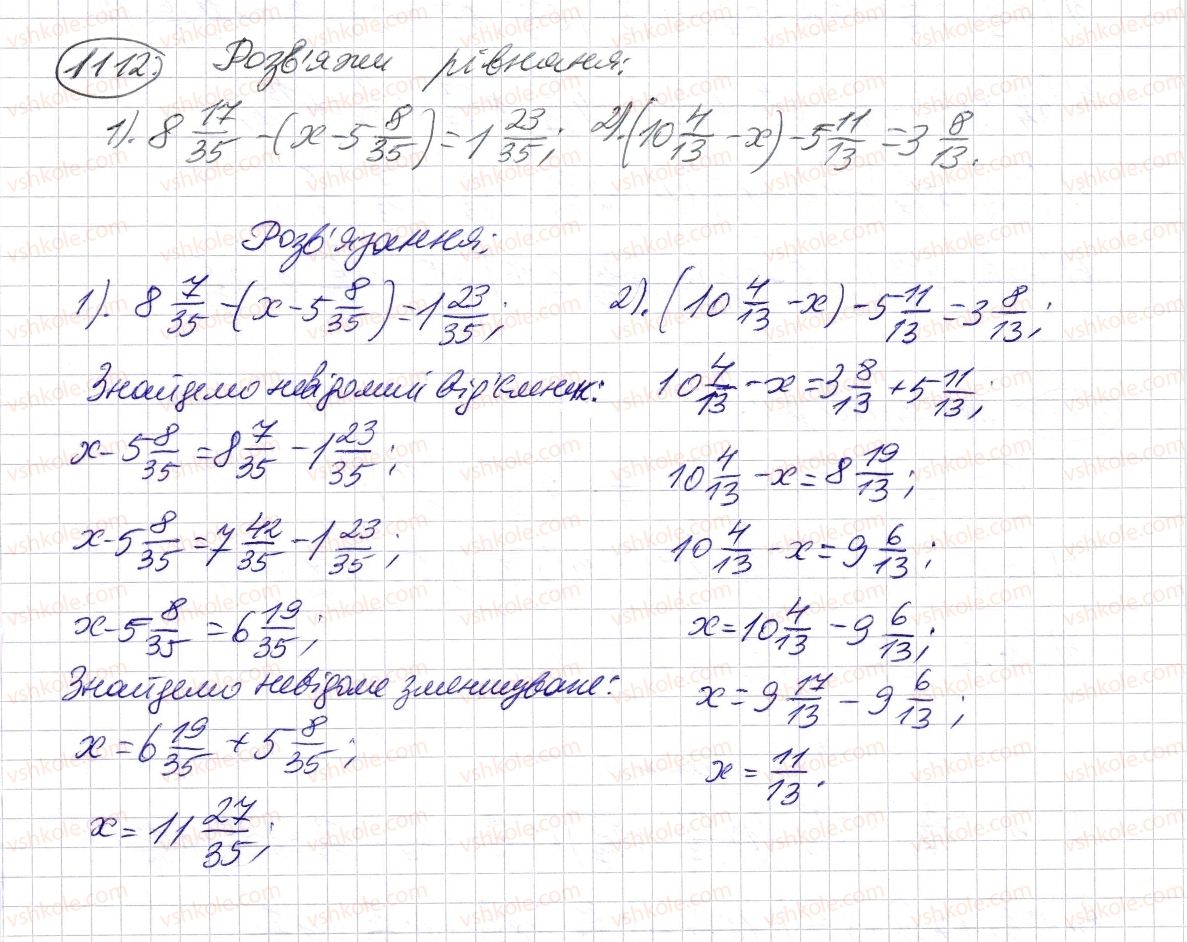 1112) Розв'яжи рівняння:
1). 8 17/35 - (x - 5 8/35) = 1 23/35; 2). (10 4/13 - x) - 5 11/13 = 3 8/13.
Розв'язання:
1). 8 7/35 - (x - 5 8/35) = 1 23/35;
Знайдемо невідомий від'ємник:
x - 5 8/35 = 8 7/35 - 1 23/35;
x - 5 8/35 = 7 42/35 - 1 23/35;
x - 5 8/35 = 6 19/35;
Знайдемо невідоме зменшуване:
x = 6 19/35 + 5 8/35;
x = 11 27/35;
2). (10 4/13 - x) - 5 11/13 = 3 8/13;
10 4/13 - x = 3 8/13 + 5 11/13;
10 4/13 - x = 8 19/13;
10 4/13 - x = 9 6/13;
x = 10 4/13 - 9 6/13;
x = 9 17/13 - 9 6/13;
x = 11/13.
vshkole.com